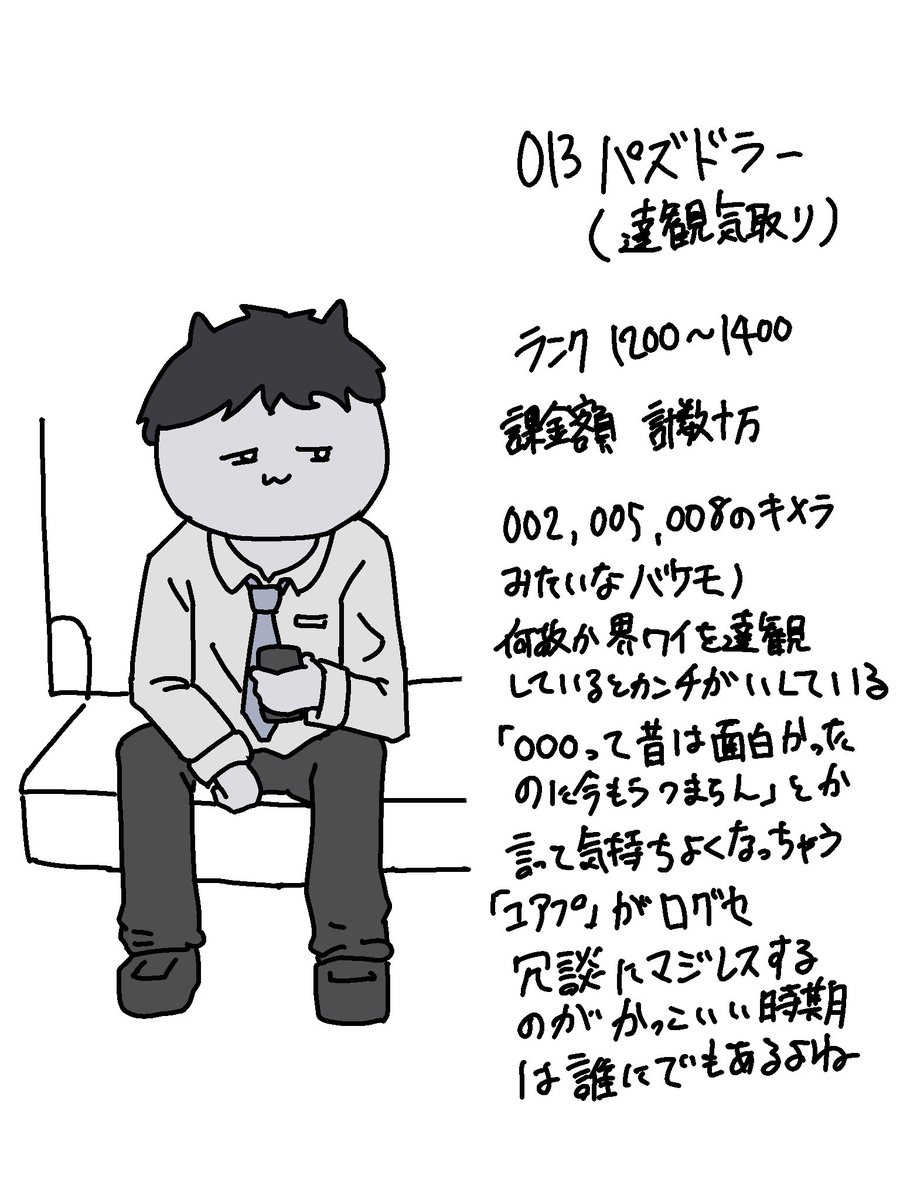 013 パズドラー
(達観気取り)
ランク 1200〜1400
課金額 計数十万
002,005,008のキメラ
みたいなバケモノ
何故か界ワイを達観
しているとカンチがいしている
「○○○って昔は面白かった
のに今もうつまらん」とか
言って気持ちよくなっちゃう
「エアプ」が口グセ
冗談にマジレスする
のがかっこいい時期
は誰にでもあるよね